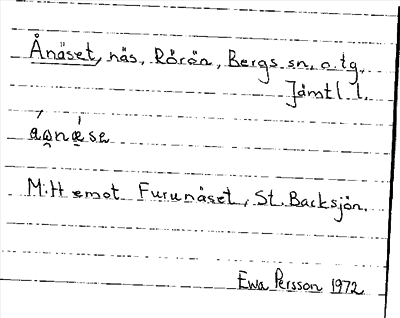 Ånäset, näs, Rörön, Bergs sn. o. tg.
Jämtl. l.
Mitt emot Furunäset, St. Backsjön.
Ewa Persson 1972